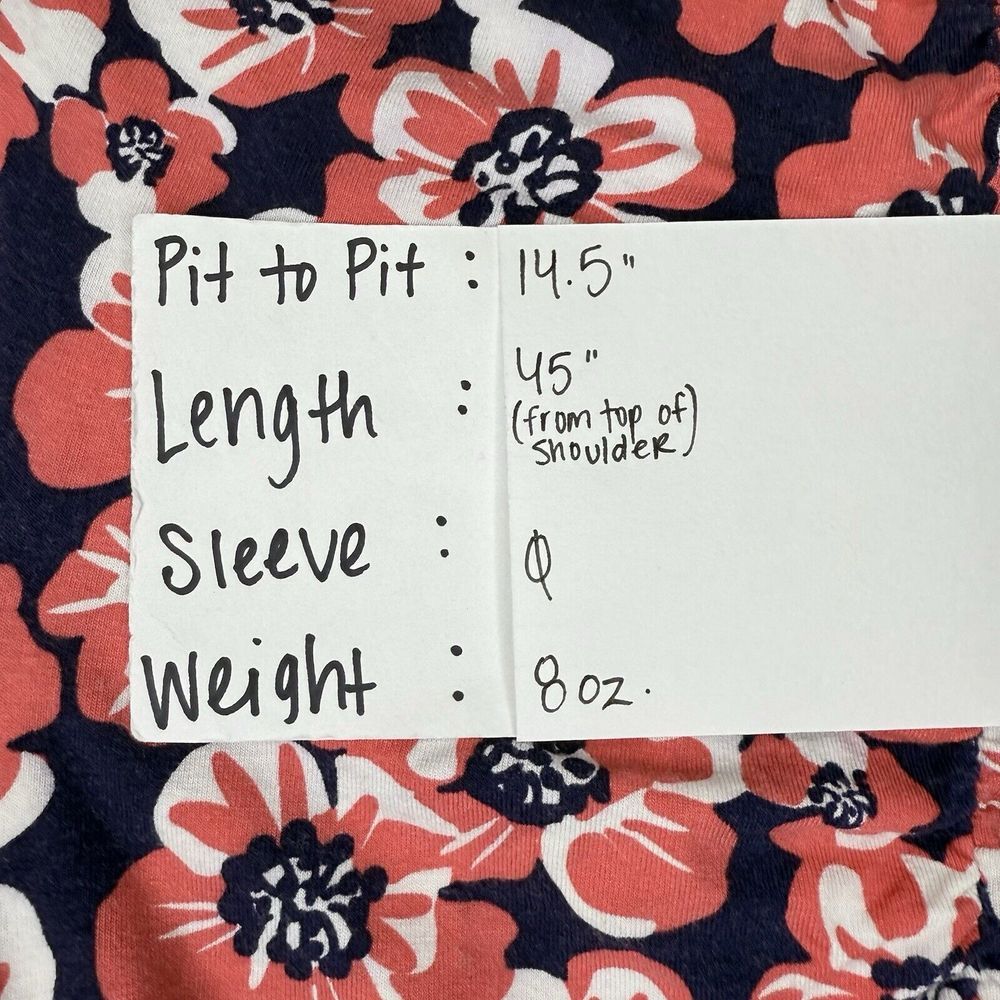 Pit to Pit : 14.5"
Length : 45"
(from top of
shoulder)
Sleeve : Ø
Weight : 8 oz.